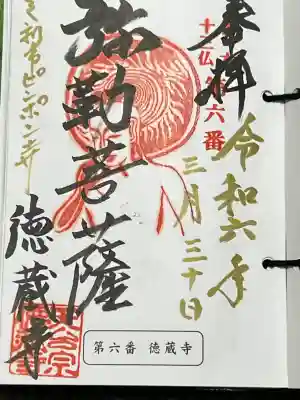 奉拝
十二仏第六番
令和六年
三月三十日
弥勒菩薩
徳蔵寺
第六番 徳蔵寺